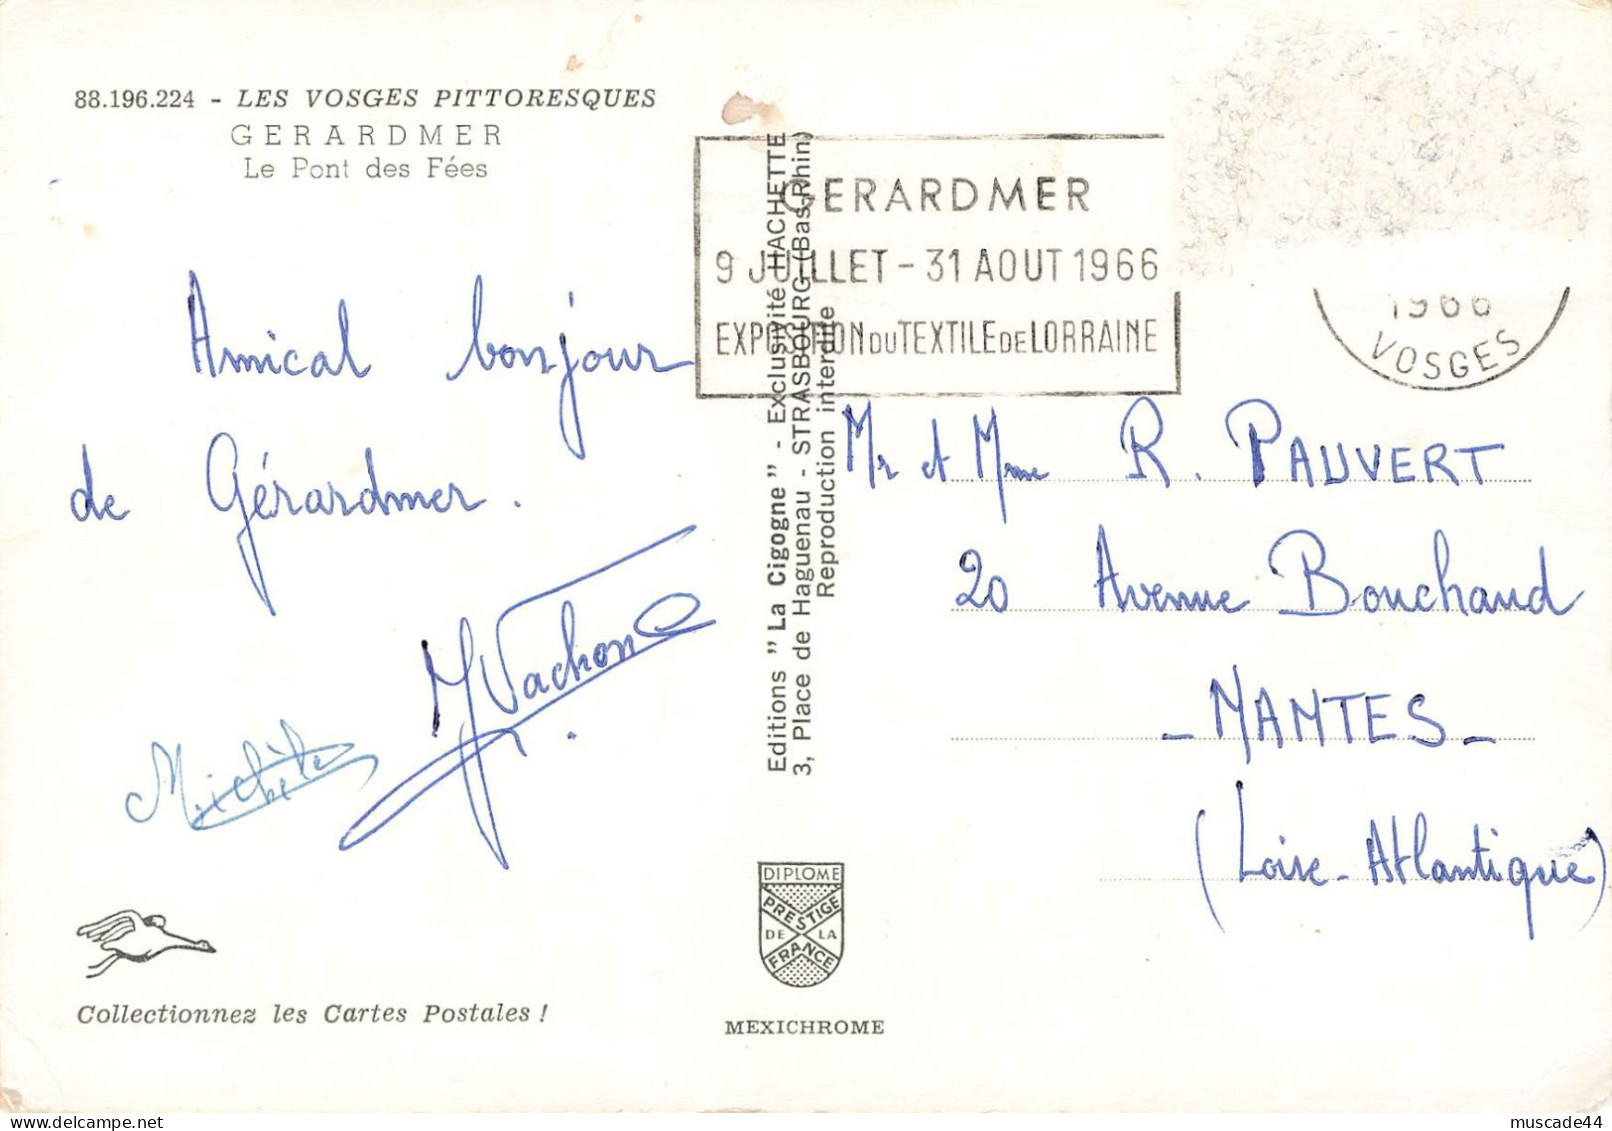 88.196.224 - LES VOSGES PITTORESQUES
GERARDMER
Le Pont des Fées
GERARDMER
9 JUILLET - 31 AOUT 1966
EXPOSITION DU TEXTILE DE LORRAINE
1966
VOSGES
Amical bonjour
de Gérardmer.
Vachon
Michèle
Editions " La Cigogne " - Exclusivité HACHETTE
3, Place de Haguenau - STRASBOURG (Bas-Rhin)
Reproduction interdite
Mr et Mme R. PAUVERT
20 Avenue Bouchaud
- NANTES -
(Loire-Atlantique)
DIPLOME
PRESTIGE
DE LA
FRANCE
Collectionnez les Cartes Postales !
MEXICHROME
muscade44